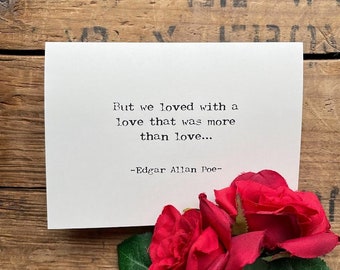 But we loved with a
love that was more
than love...
-Edgar Allan Poe-